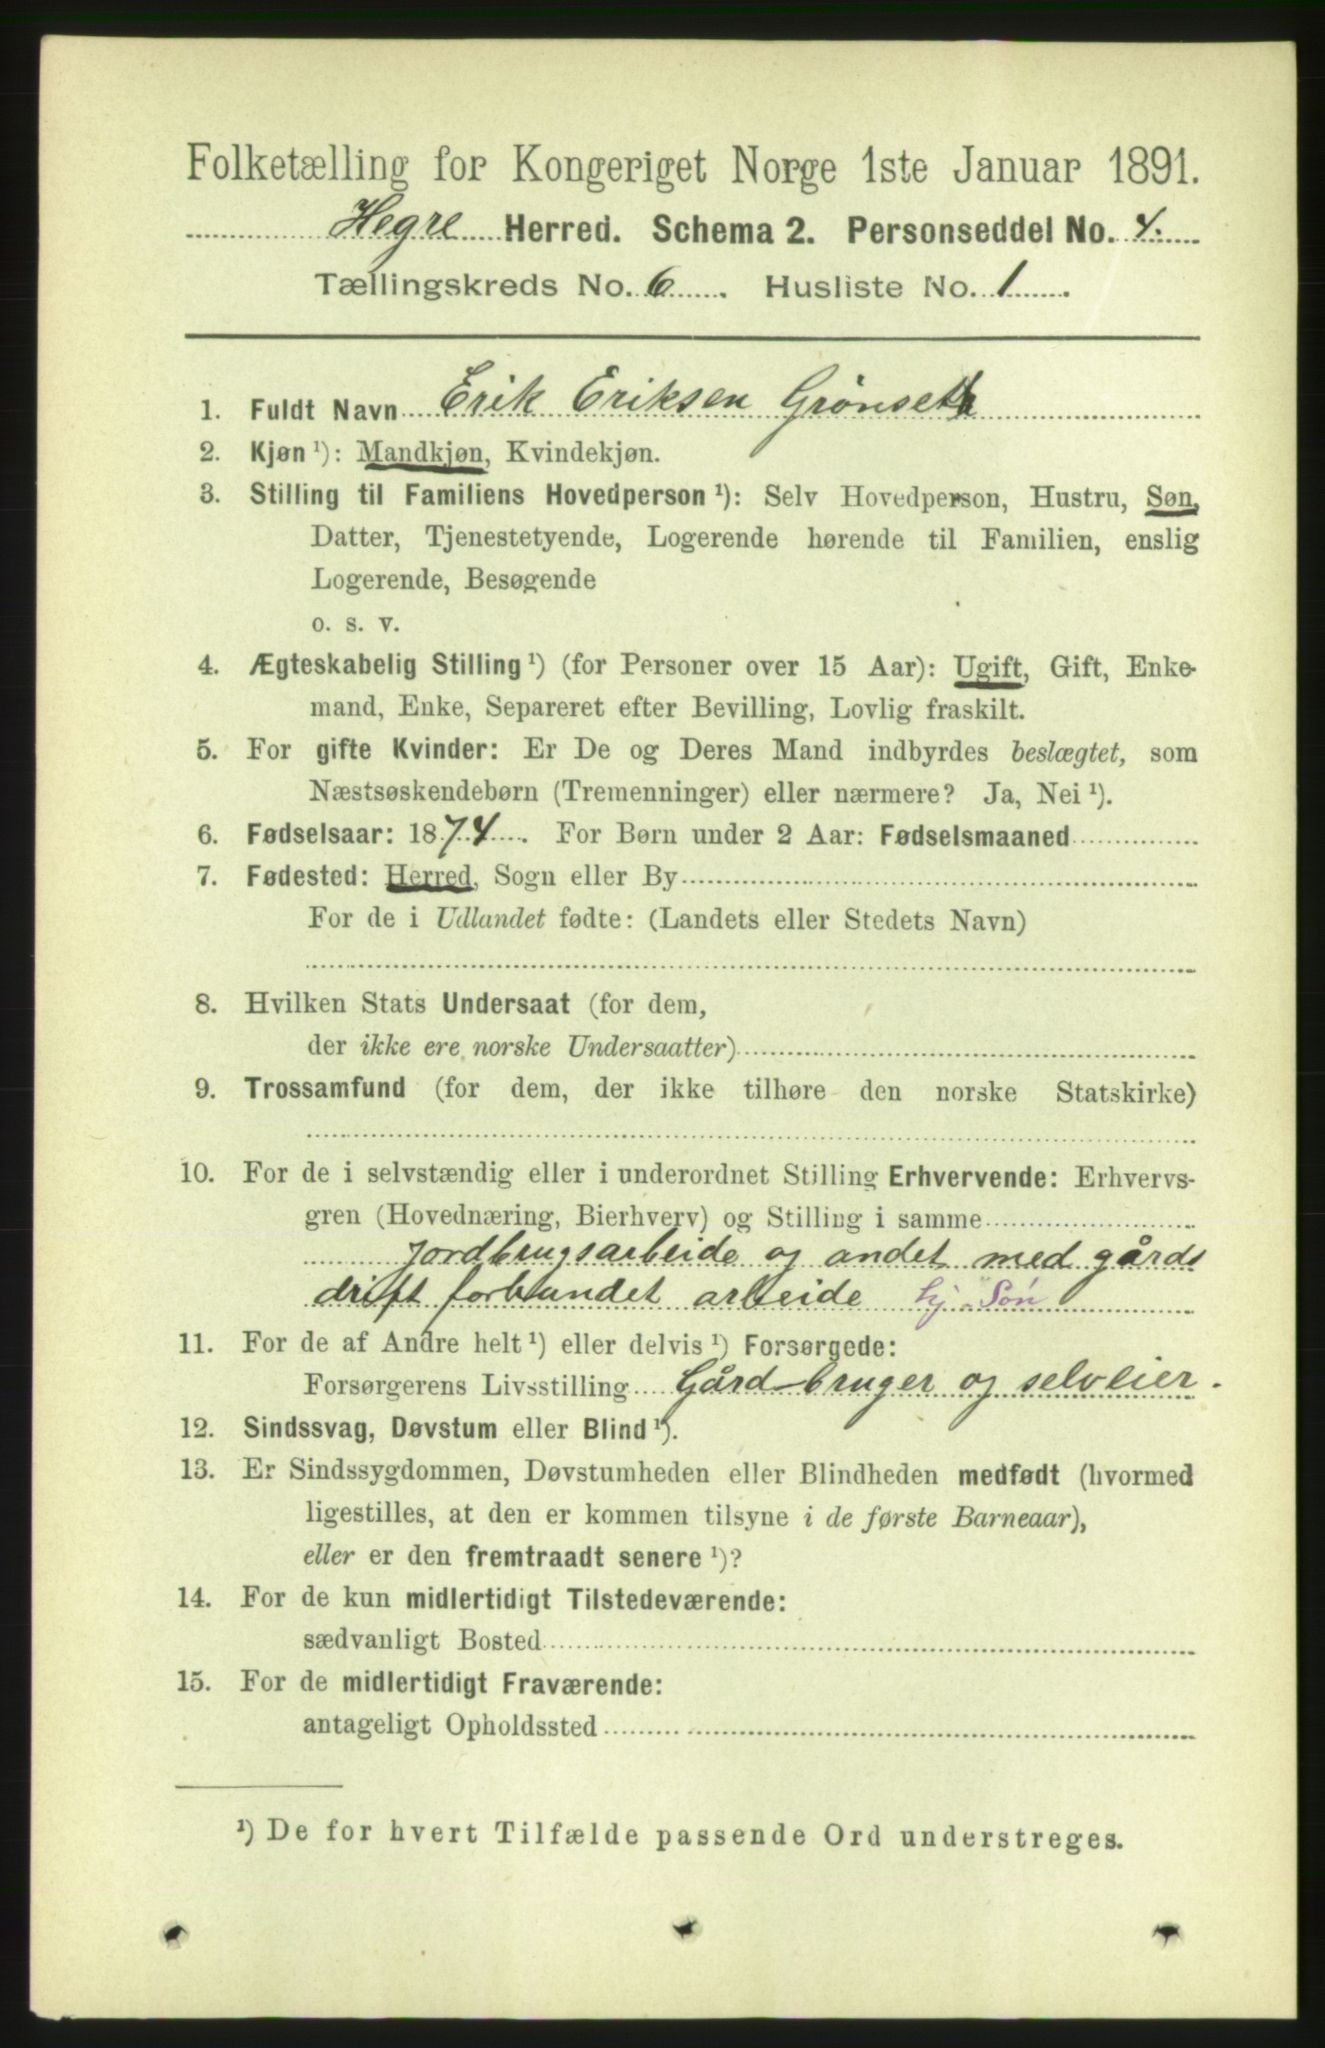 Folketælling for Kongeriget Norge 1ste Januar 1891.
Hegre Herred. Schema 2. Personseddel No. 4.
Tællingskreds No. 6. Husliste No. 1.
1. Fuldt Navn Erik Eriksen Grønseth
2. Kjøn ¹): Mandkjøn, Kvindekjøn.
3. Stilling til Familiens Hovedperson ¹): Selv Hovedperson, Hustru, Søn,
Datter, Tjenestetyende, Logerende hørende til Familien, enslig
Logerende, Besøgende
o. s. v.
4. Ægteskabelig Stilling ¹) (for Personer over 15 Aar): Ugift, Gift, Enke-
mand, Enke, Separeret efter Bevilling, Lovlig fraskilt.
5. For gifte Kvinder: Er De og Deres Mand indbyrdes beslægtet, som
Næstsøskendebørn (Tremenninger) eller nærmere? Ja, Nei ¹).
6. Fødselsaar: 1874. For Børn under 2 Aar: Fødselsmaaned
7. Fødested: Herred, Sogn eller By
For de i Udlandet fødte: (Landets eller Stedets Navn)
8. Hvilken Stats Undersaat (for dem,
der ikke ere norske Undersaatter)
9. Trossamfund (for dem, der ikke tilhøre den norske Statskirke)
10. For de i selvstændig eller i underordnet Stilling Erhvervende: Erhvervs-
gren (Hovednæring, Bierhverv) og Stilling i samme
Jordbrugsarbeide og andet med gårds
drift forbundet arbeide hj. Søn
11. For de af Andre helt ¹) eller delvis ¹) Forsørgede:
Forsørgerens Livsstilling Gårdbruger og selveier.
12. Sindssvag, Døvstum eller Blind ¹).
13. Er Sindssygdommen, Døvstumheden eller Blindheden medfødt (hvormed
ligestilles, at den er kommen tilsyne i de første Barneaar),
eller er den fremtraadt senere ¹)?
14. For de kun midlertidigt Tilstedeværende:
sædvanligt Bosted
15. For de midlertidigt Fraværende:
antageligt Opholdssted
¹) De for hvert Tilfælde passende Ord understreges.